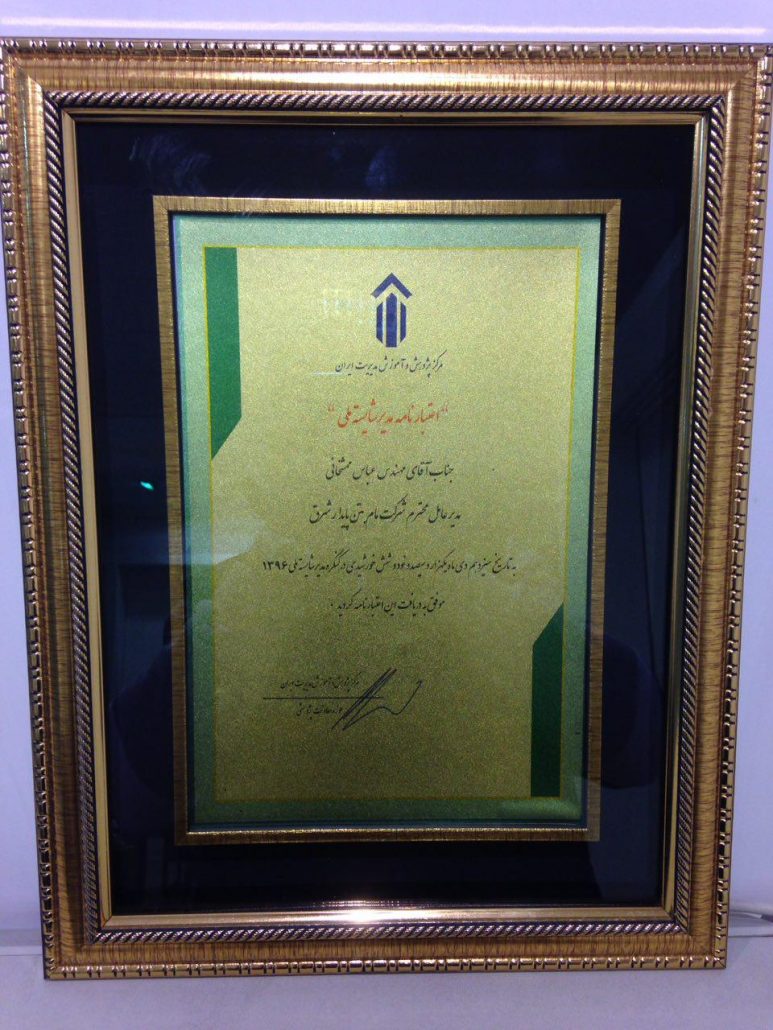 مرکز پژوهش و آموزش مدیریت ایران
"اعتبارنامه مدیر شایسته ملی"
جناب آقای مهندس عباس ممشخانی
مدیرعامل محترم شرکت مامر بتن پایدار شرق
به تاریخ سیزدهم دی ماه یکهزار و سیصد و نود و شش خورشیدی در کنگره مدیر شایسته ملی ۱۳۹۶
موفق به دریافت این اعتبارنامه گردید.
مرکز پژوهش و آموزش مدیریت ایران
حوزه معاونت پژوهشی